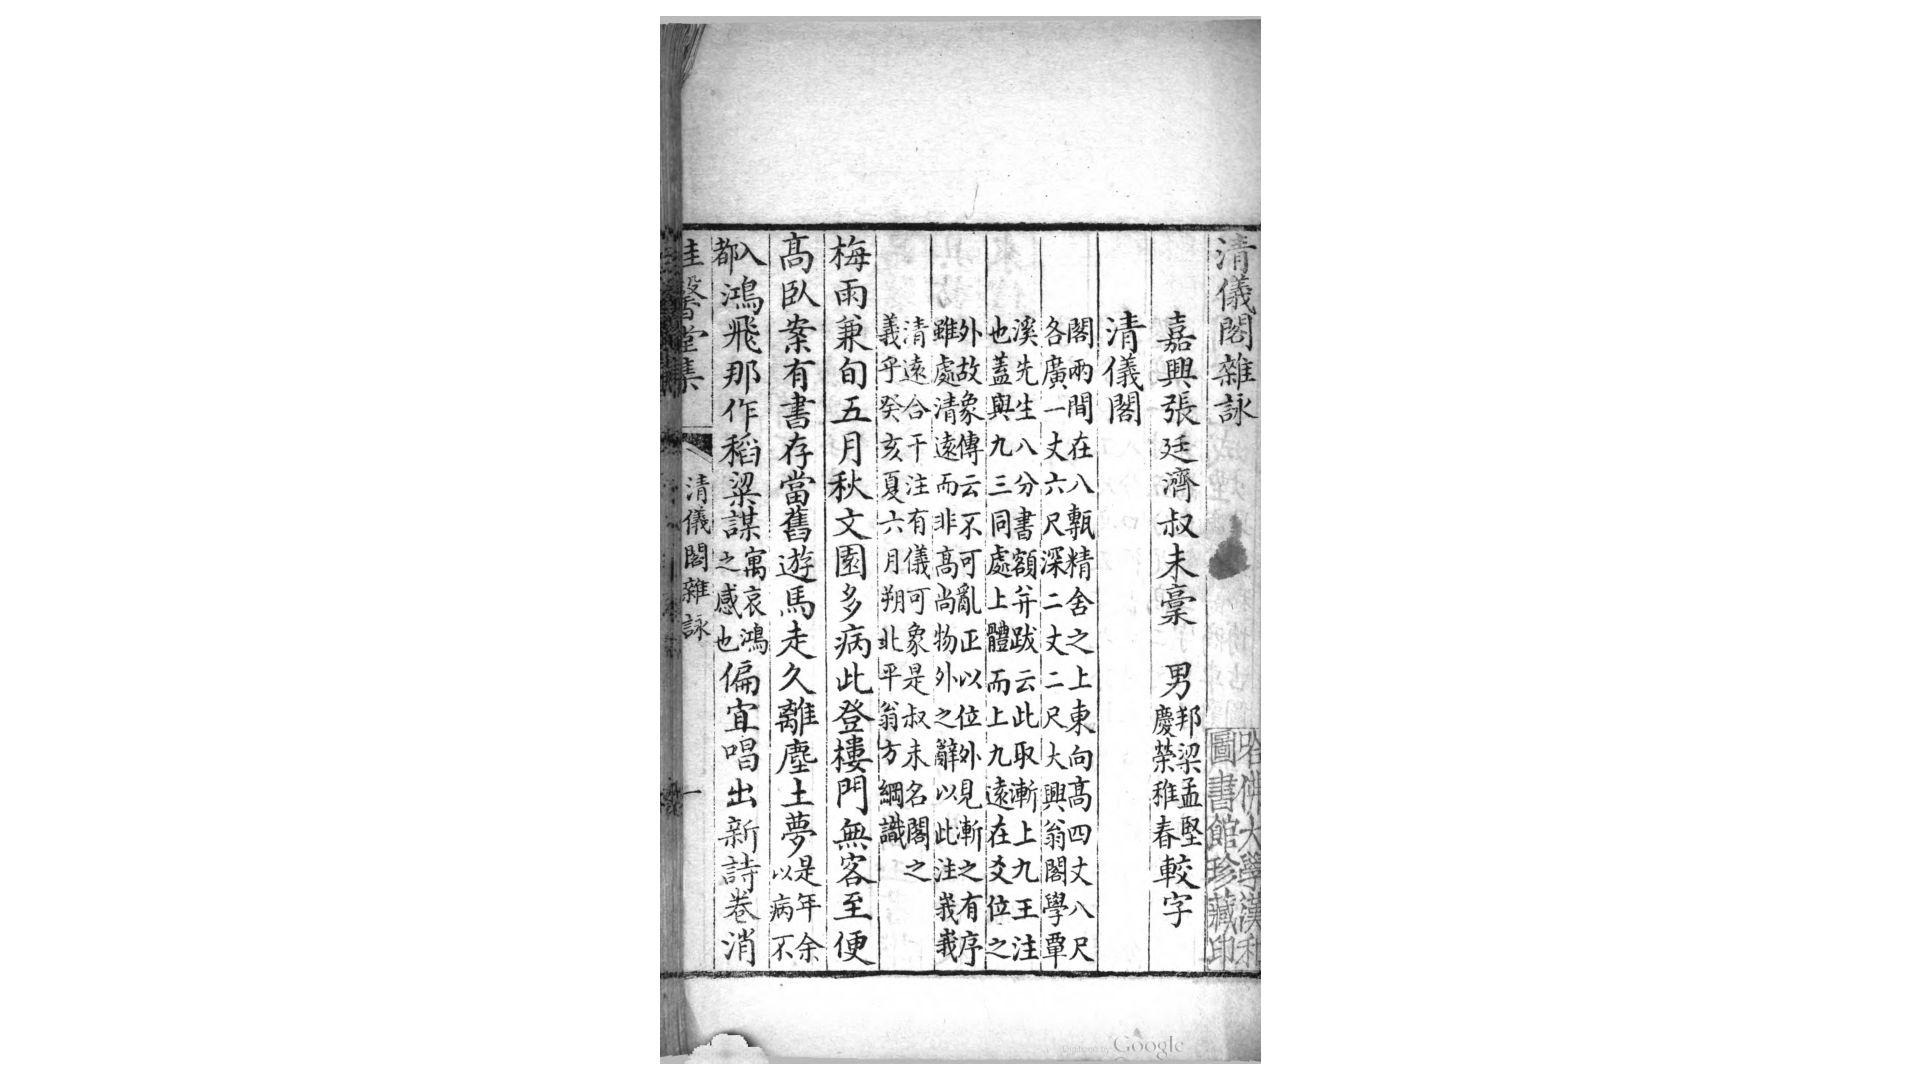 清儀閣雜詠
嘉興張廷濟叔未稾　男邦梁孟堅慶榮稚春較字
清儀閣
閣兩間在八甎精舍之上東向高四丈八尺
各廣一丈六尺深二丈二尺大興翁閣學覃
溪先生八分書額并跋云此取漸上九王注
也蓋與九三同處上體而上九遠在爻位之
外故象傳云不可亂正以位外見漸之有序
雖處清遠而非高尚物外之辭以此注峩峩
清遠合干注有儀可象是叔未名閣之
義乎癸亥夏六月朔北平翁方綱識
梅雨兼旬五月秋文園多病此登樓門無客至便
高臥案有書存當舊遊馬走久離塵土夢是年余以病不
入都鴻飛那作稻粱謀寓哀鴻之感也偏宜唱出新詩卷消
桂馨堂集
清儀閣雜詠
一
哈佛大學漢和
圖書館珍藏印
Digitized by Google